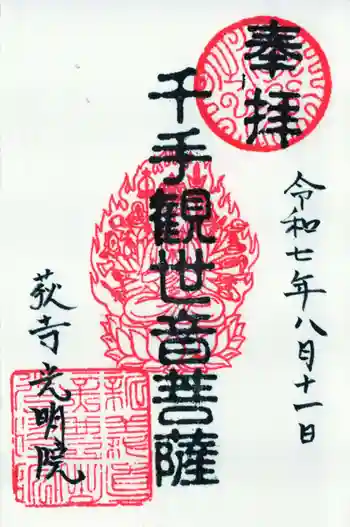 奉拝
令和七年八月十一日
千手観世音菩薩
萩寺光明院